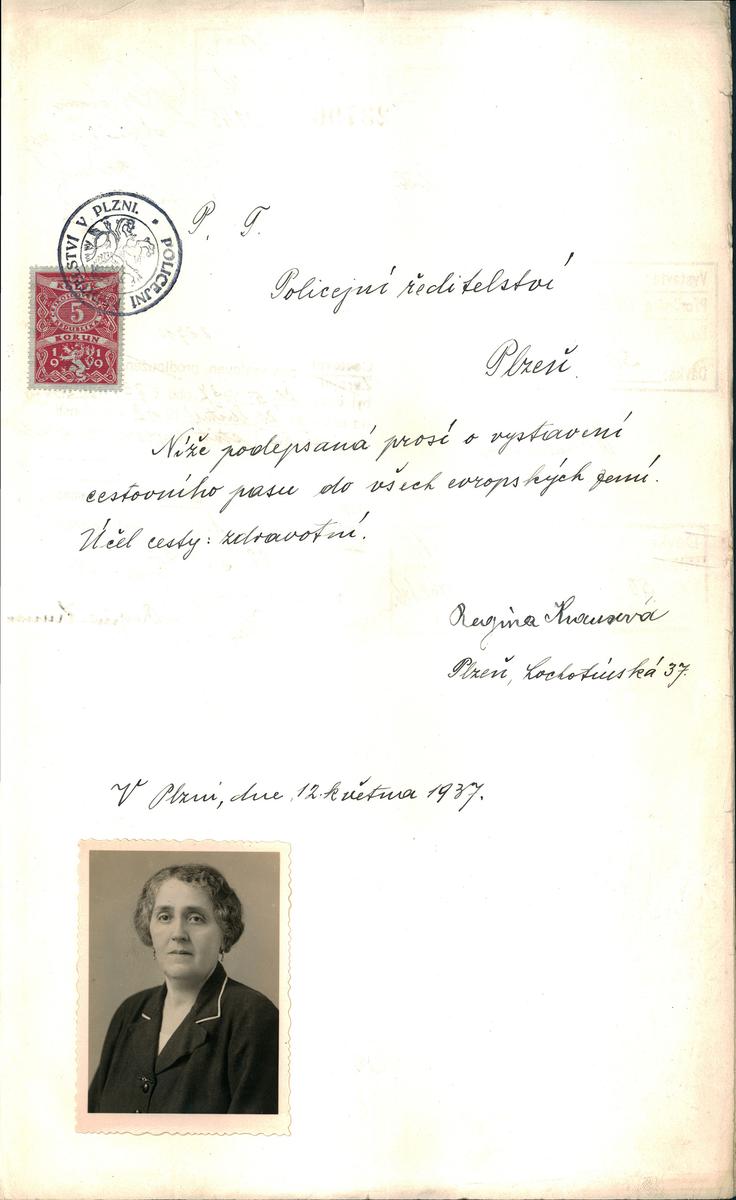 POLICEJNI ŘEDITELSTVÍ V PLZNI.
KOLEK
5
KORUN
1919
P. T.
Policejní ředitelství
Plzeň.
Níže podepsaná prosí o vystavení
cestovního pasu do všech evropských zemí.
Účel cesty: zdravotní.
Regina Krausová
Plzeň, Lochotínská 37.
V Plzni, dne 12. května 1937.